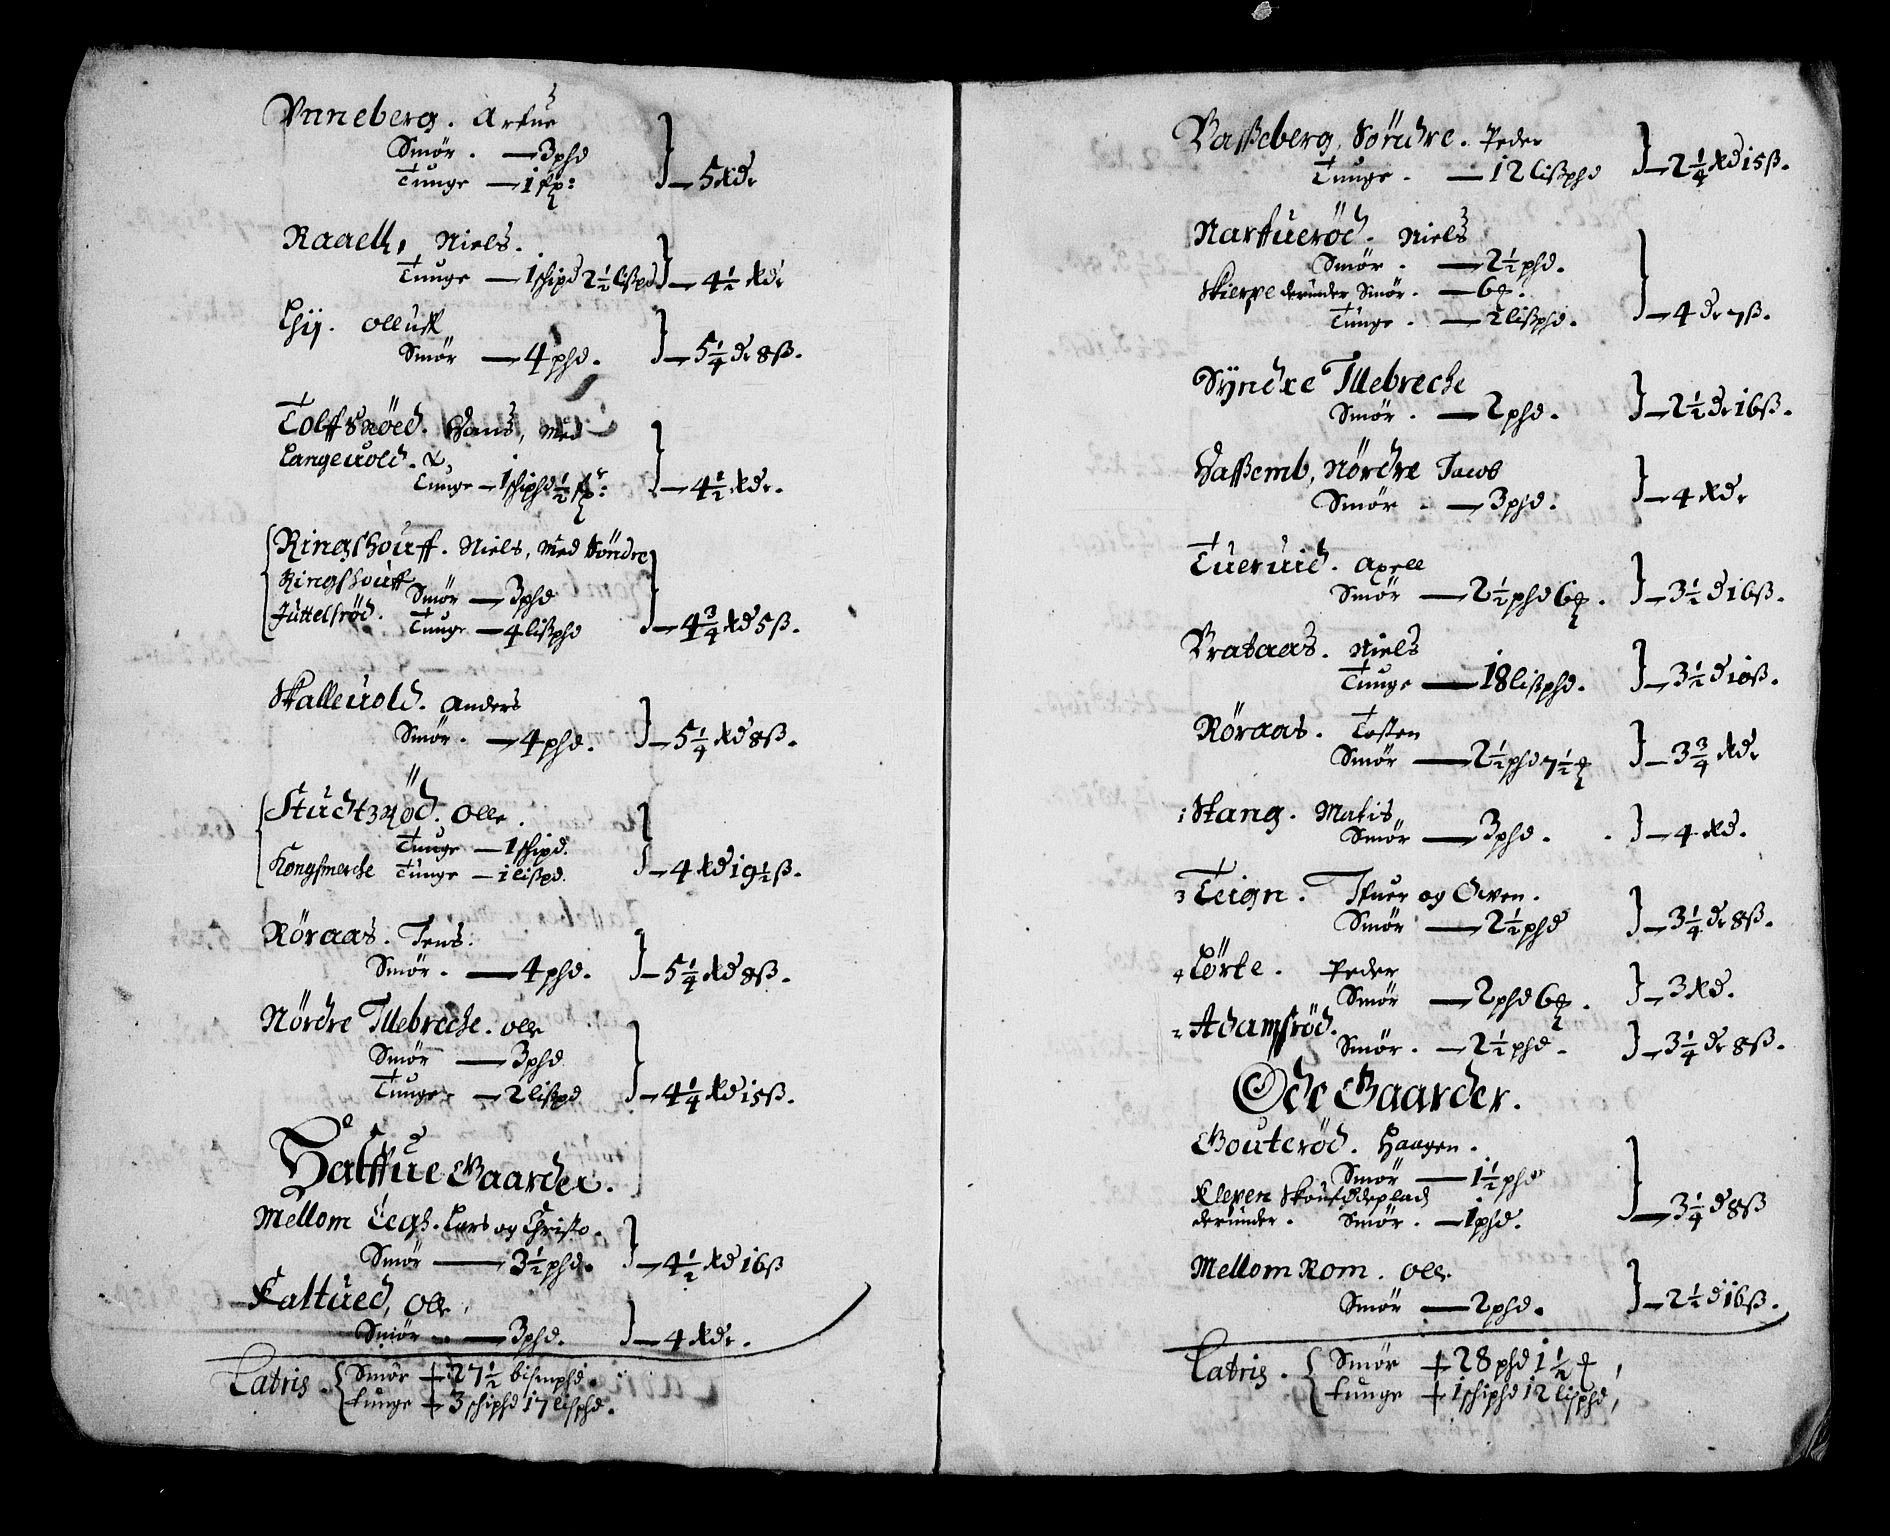 Vnneberg. Arfue
Smör. — 3 phd
Tunge — 1 — 5 Rdr
Raaell, Niels.
Tunge — 1 schipd 2½ lißpd — 4½ Rdr
Lhij. Olluff
Smör — 4 phd. — 5¼ dr 8ß.
Tolffsröed. Hans, Med
Langeuold. &,
Tunge — 1 schiphd ½ — 4½ Rdr.
Ringshouff. Niels, Med Söndre
Ringshouff Smör — 3 phd
Jüttelsröd. Tunge — 4 lißphd — 4¾ Rd 5ß.
Skalleuold. Anders
Smör. — 4 phd. — 5¼ Rd 8ß.
Studtzröd. Olle.
Tunge — 1 schipd.
Kongsmerche Tunge — 1 lißpd. — 4 Rd 19½ ß.
Röraas. Jens.
Smör. — 4 phd. — 5¼ Rd 8ß.
Nördre Illebreche. Olle
Smör — 3 phd
Tunge — 2 lißpd — 4¼ Rd 15ß.
Halffue Gaarder.
Mellom Eegh. Lars og Christo.
Smör — 3½ phd. — 4½ Rd 16ß
Faltued, Olle,
Smör — 3 phd. — 4 Rdr.
Latris. Smör + 27½ bismphd.
tunge + 3 schiphd 17 lisphd.
Vasseberg, Söndre. Peder
Tunge. — 12 lißphd — 2¼ Rd 15ß.
Narffueröd. Niels
Smör. — 2½ phd.
Skierpe derunder Smör. — 6
Tunge. — 2 lißphd. — 4 dr 7ß.
Syndre Illebreche
Smör. — 2 phd. — 2½ dr 16ß.
Vassemb, Nördre Jacob
Smör. — 3 phd. — 4 Rdr
Tueruid. Axell
Smör — 2½ phd 6 — 3½ d 16ß.
Vrataas. Niels
Tunge — 18 lißphd. — 3½ d 10ß.
Röraas. Tosten
Smör — 2½ phd 7½ — 3¾ Rdr
1 Stang. Matis
Smör — 3 phd. — 4 Rd.
3 Teign. Ifuer og Owen.
Smör — 2½ phd — 3¼ dr 8ß.
4 Lörte. Peder
Smör — 2 phd 6 — 3 Rd.
2 Adamsröd.
Smör. — 2½ phd. — 3¼ dr 8ß.
Öde Gaarder.
Gouteröd. Haagen.
Smör — 1½ phd
Kleven
derunder. Smör. — 1 phd. — 3¼ d 8ß
Mellom Rom. Olle
Smör — 2 phd. — 2½ d 16ß.
Latris. Smör + 28 phd 1½
tunge + 1 schiphd 12 lisphd,